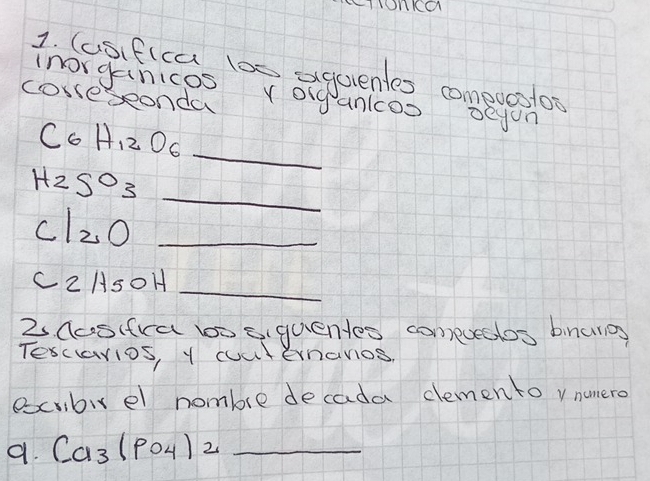 1. Casifica los siguientes compuestos
inorganicos y organicos segun
corresponda
C6 H12 O6
H2SO3
Cl2O
C2H5OH
2. clasifica los siguientes compuestos binarios,
Terciarios, y cuaternarios.
escribir el nombre de cada elemento y numero
a. Ca3(PO4)2